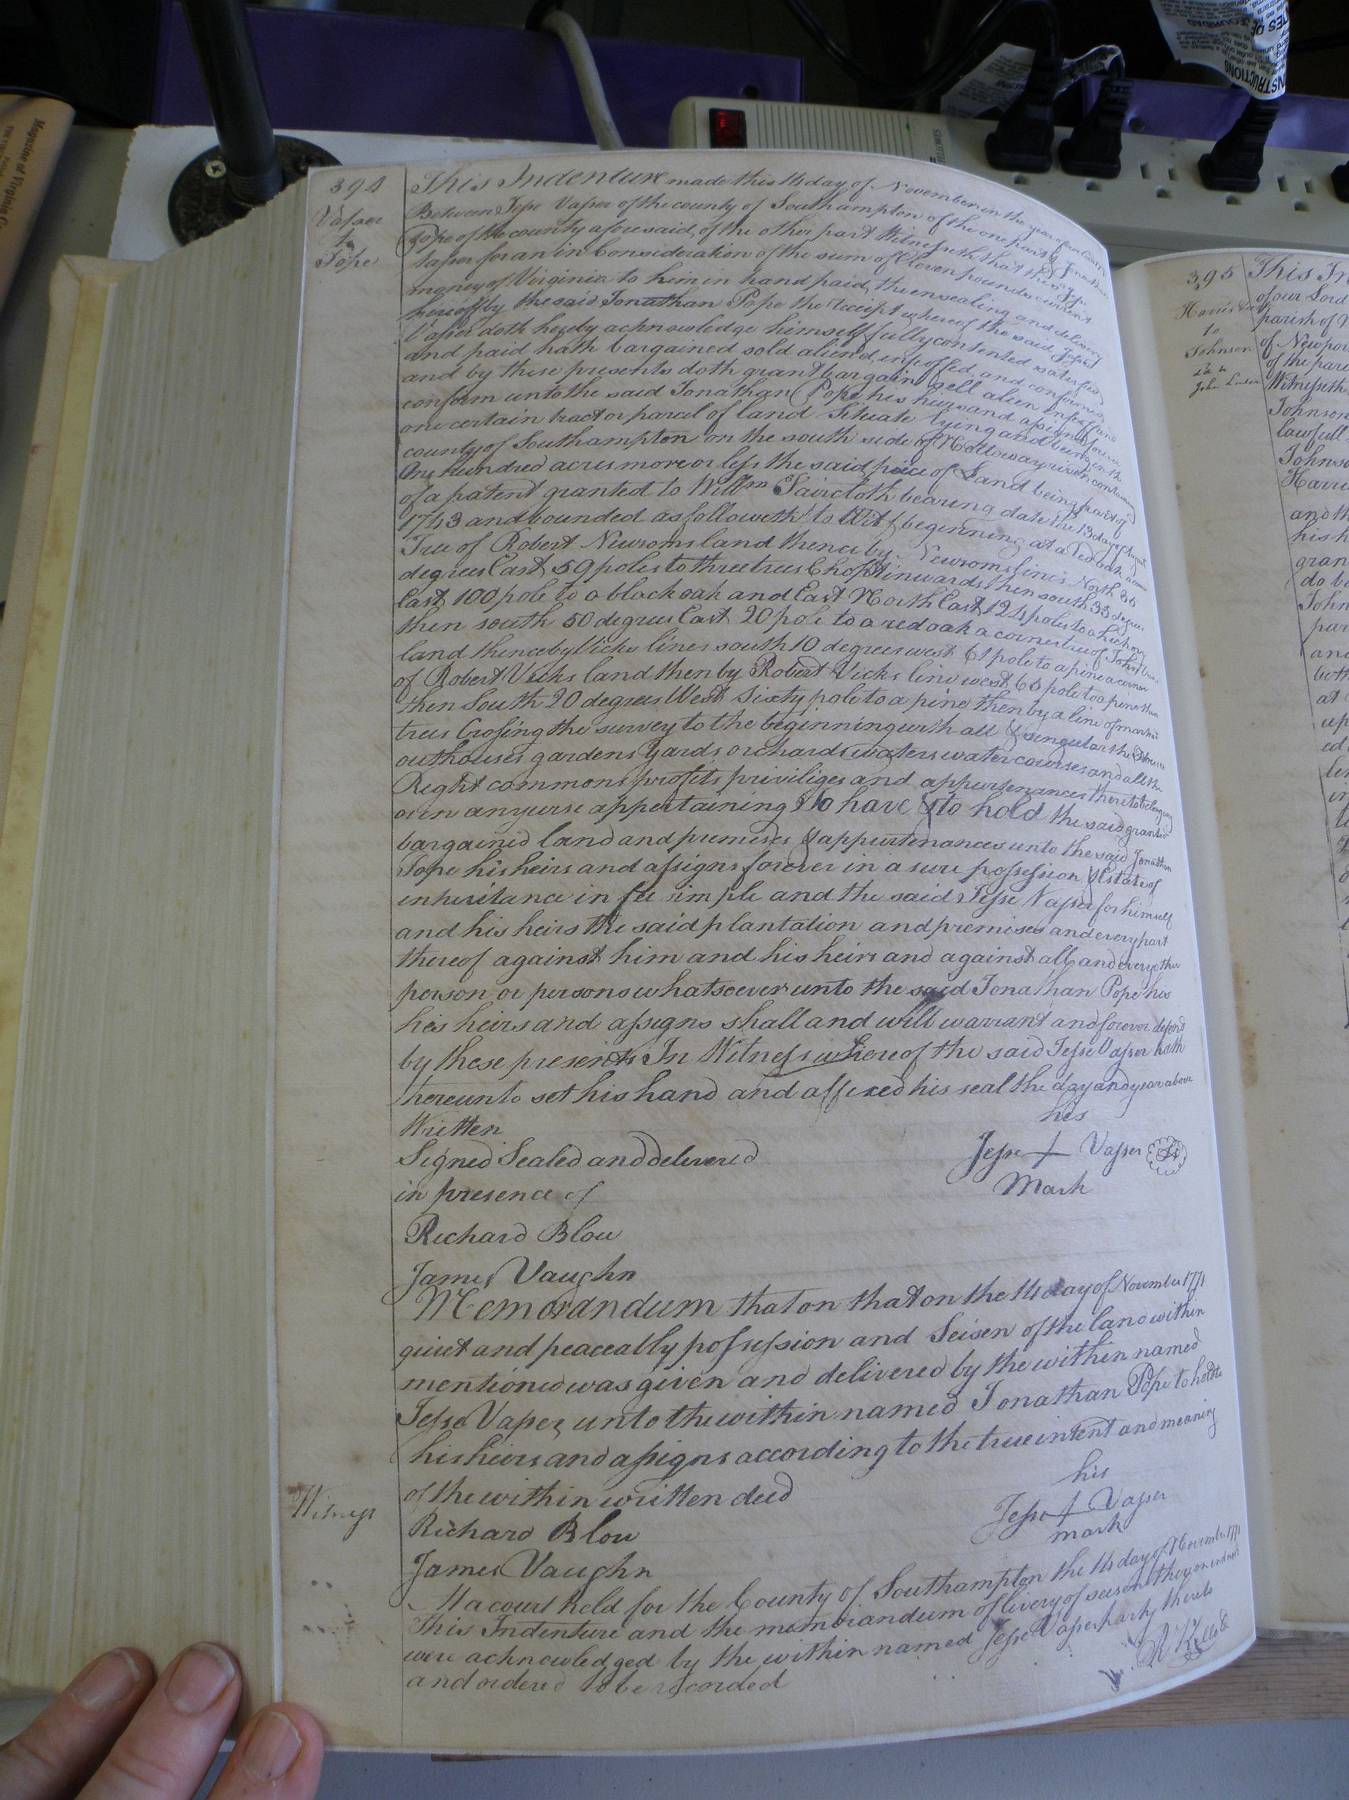 394
Vasser
to
Pope
This Indenture made this 14 day of November in the year of our
Between Jesse Vaser of the county of Southampton of the one part & Jonathan
Pope of the county aforesaid, of the other part Witnesseth that the sd Jesse
Vaser for an in Consideration of the sum of Eleven pounds current
money of Virginia to him in hand paid, the ensealing and delivery
hereof by the said Jonathan Pope the receipt whereof the said Jesse
Vaser doth hereby acknowledge himself fully contented satisfied
and paid hath bargained sold aliend, enfeoffed, and confirmed
and by these presents doth grant bargain sell alien enfeoff and
confirm unto the said Jonathan Pope his heirs and assigns forever
one certain tract or parcel of land Situate lying and being in the
county of Southampton on the south side of Nottoway river
One hundred acres more or less the said piece of Land being part of
of a patent granted to Willm Faircloth bearing date the 13 day of August
1743 and bounded as followeth to Wit beginning at a red oak a corner
Tree of Robert Newsoms land thence by Newsoms lines North 36
degrees East 59 poles to three trees Chopt inwards then south 33 degrees
East 100 pole to a black oak and East North East 124 poles to a hickory
then south 50 degrees East 20 pole to a red oak a corner tree of John
land thence by Vicks lines south 10 degrees west 61 pole to a pine a corner
of Robert Vicks land then by Robert Vicks line west 60 pole to a pine then
then South 20 degrees West Sixty pole to a pine then by a line of markt
trees Crosing the survey to the beginning with all & singular the
outhouses gardens yards orchards waters water courses and all the
Right commons profits priviliges and appurtenances thereto belonging
or in any wise appertaining To have & to hold the said granted
bargained land and premises & appurtenances unto the said Jonathan
Pope his heirs and assigns forever in a sure possession & Estate of
inheritance in fee simple and the said Jesse Vasser for himself
and his heirs the said plantation and premises and every part
thereof against him and his heirs and against all and every other
person or persons whatsoever unto the said Jonathan Pope his
his heirs and assigns shall and will warrant and forever defend
by these presents In Witness whereof the said Jesse Vasser hath
hereunto set his hand and affixed his seal the day and year above
Written
his
Signed Sealed and delivered Jesse + Vasser LS
in presence of Mark
Richard Blow
James Vaughn
Memorandum that on that on the 14 day of November 1771
quiet and peaceably possession and Seisen of the land within
mentioned was given and delivered by the within named
Jesse Vaper unto the within named Jonathan Pope to hold to
his heirs and assigns according to the true intent and meaning
of the within written deed his
Witness Richard Blow Jesse + Vaser
James Vaughn mark
At a court held for the County of Southampton the 14 day of November 1771
This Indenture and the memorandum of livery of seison thereon indorsed
were acknowledged by the within named Jesse Vaser party thereto
and ordered to be recorded R Kello
395
Harris
to
Johnson
This In
of our Lord
parish of
of Newpor
of the pari
Witnesseth
Johnson
lawfull
Johnso
Harri
and th
his h
gran
do b
John
par
and
Magazine of Virginia
INSTRUCTIONS